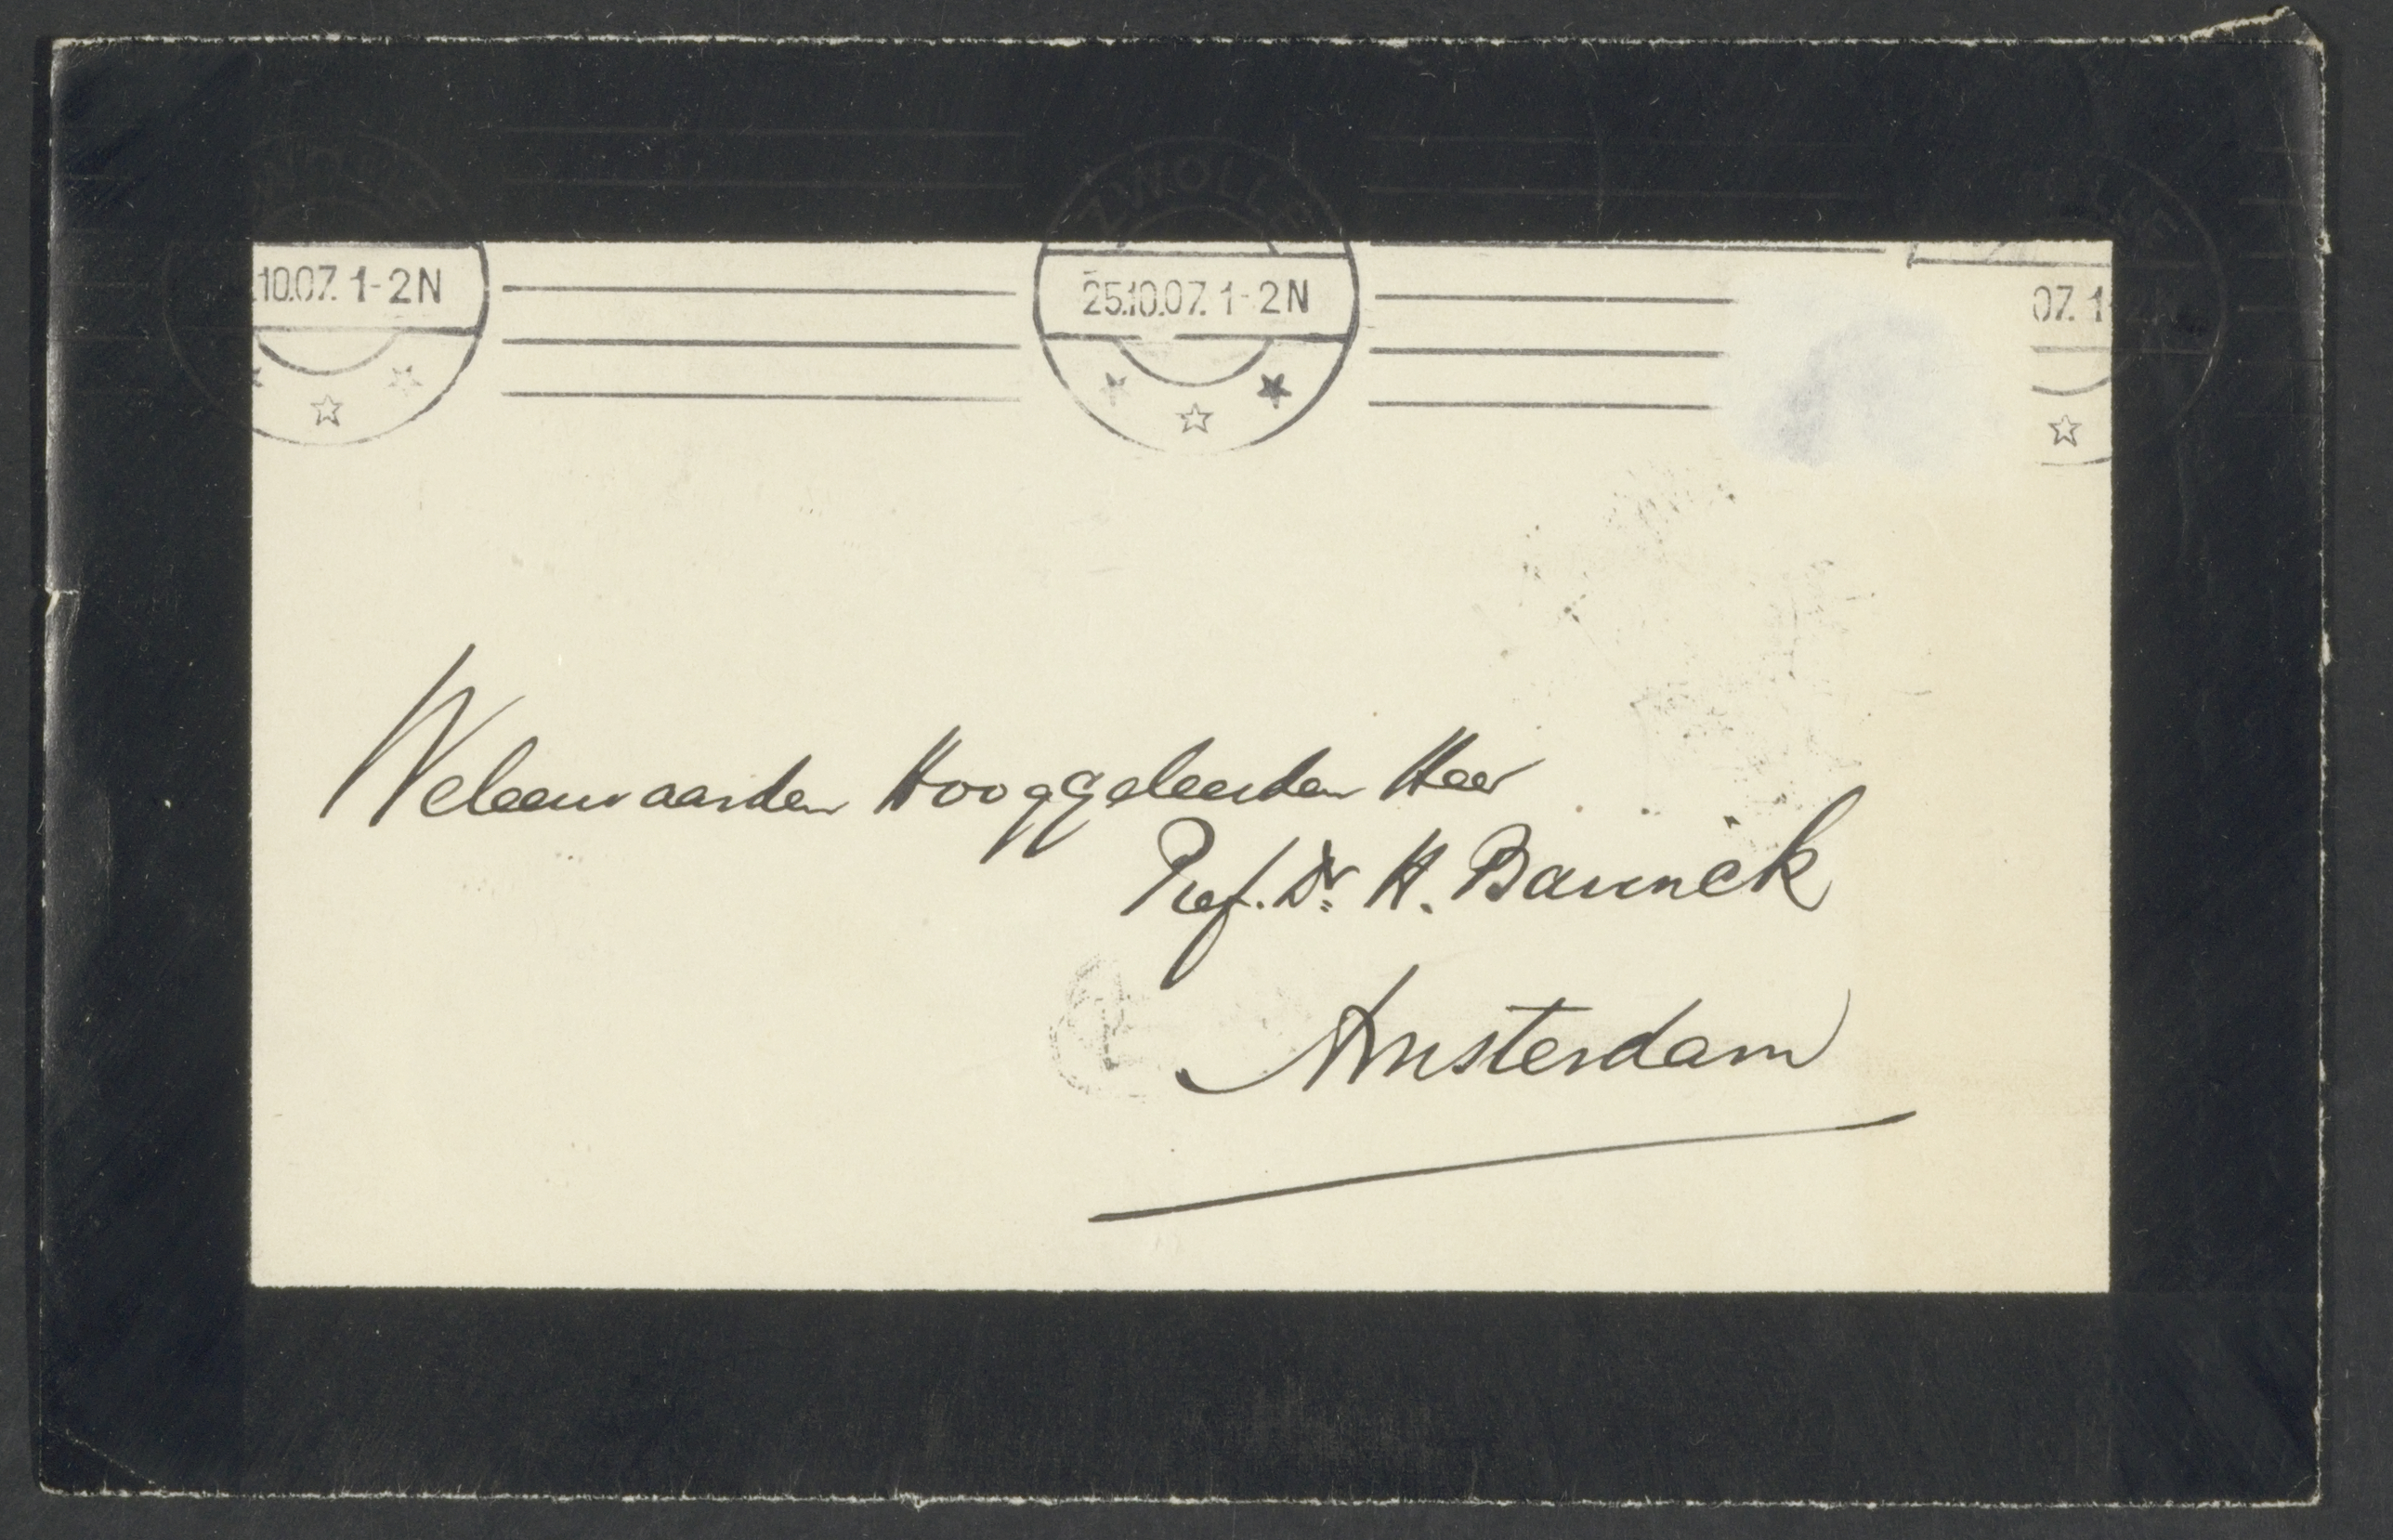 ZWOLLE
10.07. 1-2N
25.10.07. 1-2N
07. 1-2N
Weleerwaarden Hooggeleerden Heer
Prof. Dr. H. Bavinck
Amsterdam